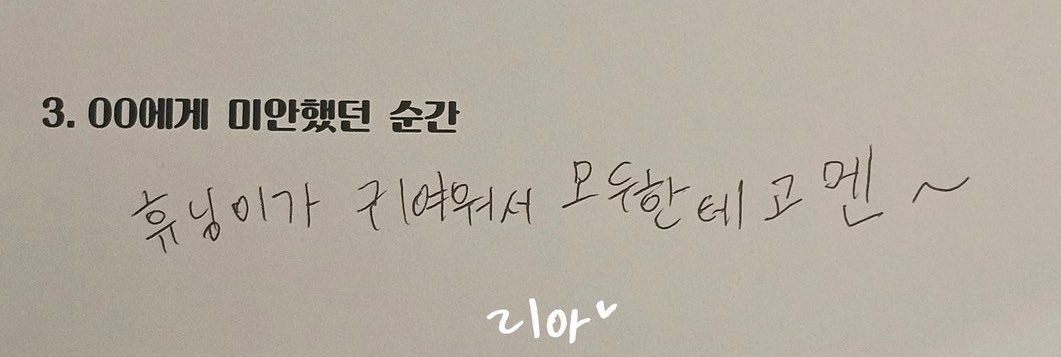 3. OO에게 미안했던 순간
휴닝이가 귀여워서 모두한테 고멘~
리아